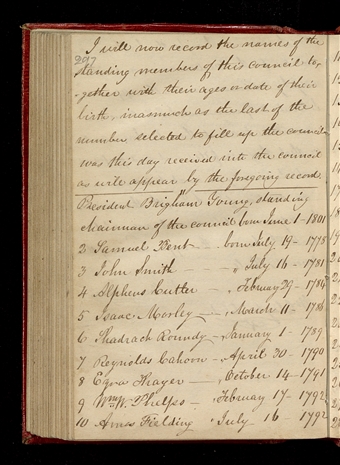 I will now record the names of the
297
standing members of this council to,
,gether with their ages or date of their
birth, inasmuch as the last of the
number selected to fill up the council
was this day received into the council
as will appear by the foregoing record
President Brigham Young, standing
chairman of the council born June 1 - 1801
2 Samuel Bent — born July 19 - 1778
3 John Smith — „ July 16 - 1781
4 Alpheus Cutler — „ February 29 - 1784
5 Isaac Morley — „ March 11 - 1786
6 Shadrach Roundy - January 1 - 1789
7 Reynolds Cahoon - April 30 - 1790
8 Ezra Thayer — „ October 14 - 1791
9 Wm W. Phelps - „ February 17 - 1792
10 Amos Fielding „ July 16 1792